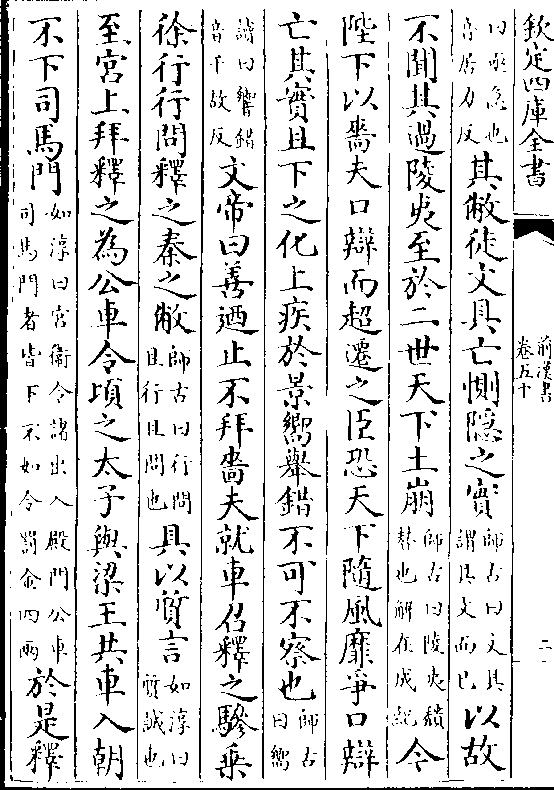 欽定四庫全書
前漢書
卷五十
二
曰亟急也
音居力反
其敝徒文具亡惻隱之實
師古曰文具
謂具文而已
以故
不聞其過陵夷至於二世天下土崩
師古曰陵夷頽
替也解在成紀
今
陛下以嗇夫口辯而超遷之臣恐天下隨風靡爭口辯
亡其實且下之化上疾於景嚮舉錯不可不察也
師古
曰嚮
讀曰響錯
音千故反
文帝曰善迺止不拜嗇夫就車召釋之驂乗
徐行行問釋之秦之敝
師古曰行問
且行且問也
具以質言
如淳曰
質誠也
至宮上拜釋之為公車令頃之太子與梁王共車入朝
不下司馬門
如淳曰宮衛令諸出入殿門公車
司馬門者皆下不如令罰金四兩
於是釋